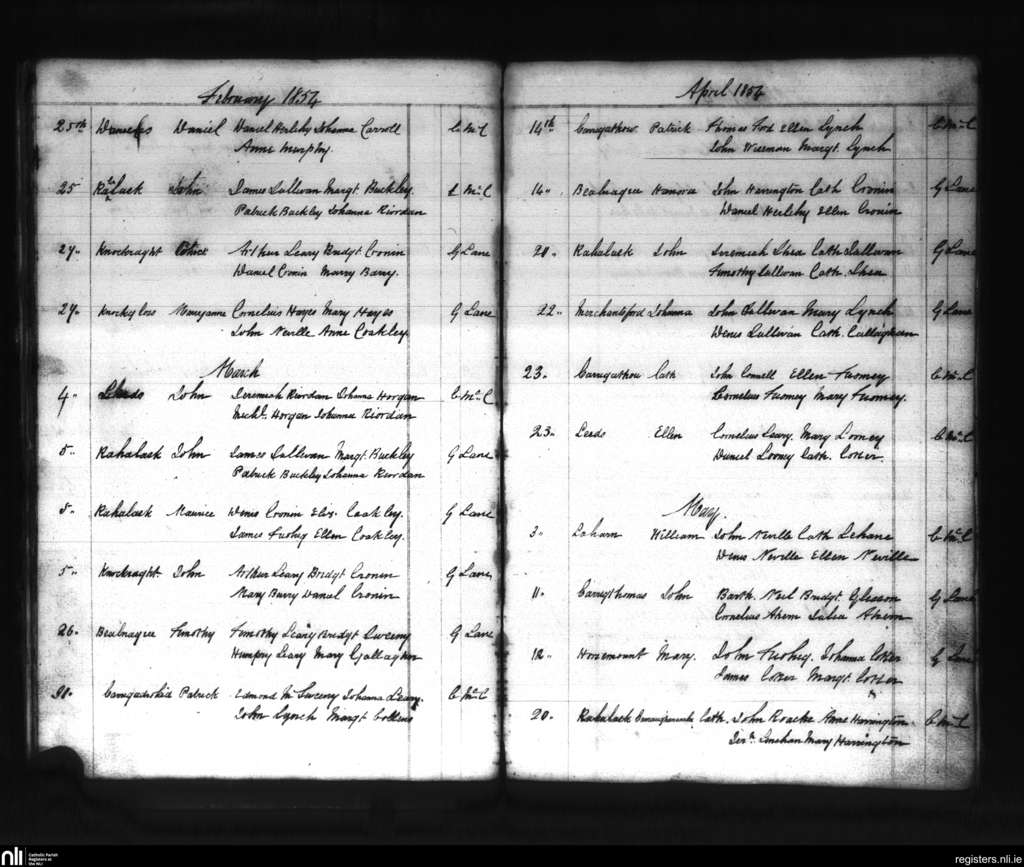 February 1854
25th Daniel Daniel Herlihy Johanna Carroll C. McC
Anne Murphy.
25 Rahaluck John James Sullivan Margt. Buckley C. McC
Patrick Buckley Johanna Riordan
27. Knockraght Arthur Leary Bridgt Cronin G Lane
Daniel Cronin Marry Barry.
27. Knockyloss Maryanne Cornelius Hayes Mary Hayes G Lane
John Neville Anne Coakley.
March
4. John Jeremiah Riordan Johanna Horgan C. McC
Michl. Horgan Johanna Riordan
5. Rahalask John James Sullivan Margt. Buckley G Lane
Patrick Buckley Johanna Riordan
5. Rahalask Maurice Denis Cronin Eliz. Coakley. G Lane
James Tuohy Ellen Coakley.
5. Knockraght. John Arthur Leary Bridgt Cronin G Lane
Mary Barry Daniel Cronin
26. Bealnagee Timothy Timothy Leary Bridgt Sweeny G Lane
Humpry Leary Mary Gallagher
Patrick Edmond McSweeny Johanna Leary. C. McC
John Lynch Margt Collins
April 1854
14th Carrigathou Patrick Thomas Ford Ellen Lynch C. McC
John Wiseman Margt. Lynch
14. Bealnagee Hanora John Harrington Cath Cronin G Lane
Daniel Herlihy Ellen Cronin
20. Rahalask John Jeremiah Shea Cath Sullivan G Lane
Timothy Sullivan Cath. Shea
22. Merchantsford Johanna John Sullivan Mary Lynch G Lane
Denis Sullivan Cath. Callaghan
23. Carrigathou Cath John Connell Ellen Twomey C. McC
Cornelius Twomey Mary Twomey.
23. Leeds Ellen Cornelius Leary. Mary Looney C. McC
Daniel Looney Cath. Coker.
May.
3. Laharn William John Neville Cath Lehane C. McC
Denis Neville Ellen Neville
11. Carrigthomas John Barth. Neil Bridgt. Gleeson G Lane
Cornelius Ahern Julia Ahern
12. Horsemount Mary. John Tuohy. Johanna Coker G Lane
James Coker Margt. Coker
20. Rahalask Cath. John Roache Anne Harrington. C. McC
Jerh. Linehan Mary Harrington
nli Catholic Parish
Registers at
the NLI
registers.nli.ie